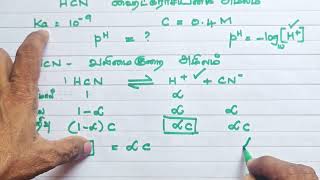 HCN ஹைட்ரோசயனிக் அமிலம்
Ka = 10⁻⁹ C = 0.4 M
pH = ? pH = -log₁₀[H⁺]
HCN - வலிமைகுறை அமிலம்
1 HCN ⇌ H⁺ ✓ + CN⁻
1 α
1-α α α
(1-α)C αC αC
] = αC